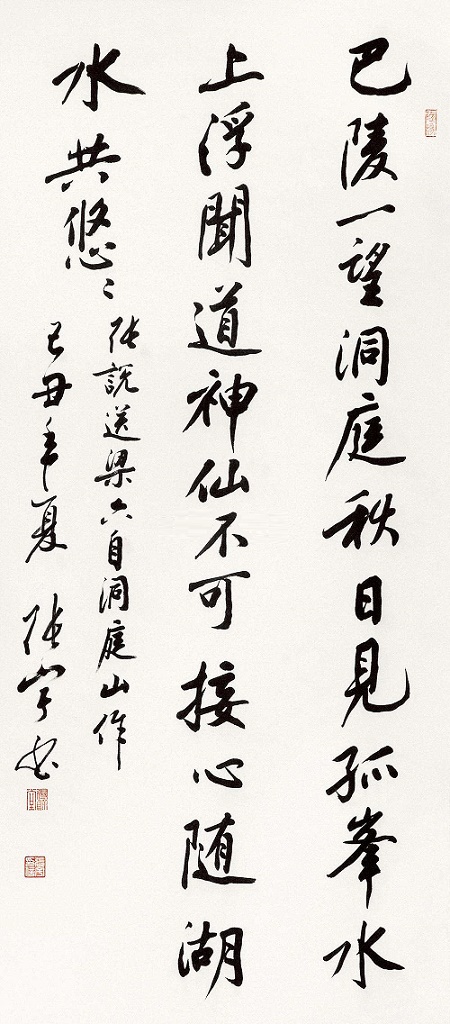 巴陵一望洞庭秋日見孤峯水
上浮聞道神仙不可接心随湖
水共悠〻
張說送梁六自洞庭山作
己丑年夏 張寧書